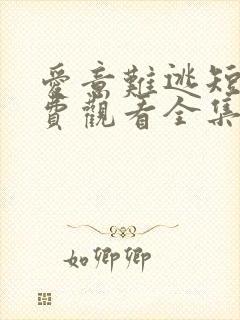 愛意難逃短
費觀看全集
如卿卿